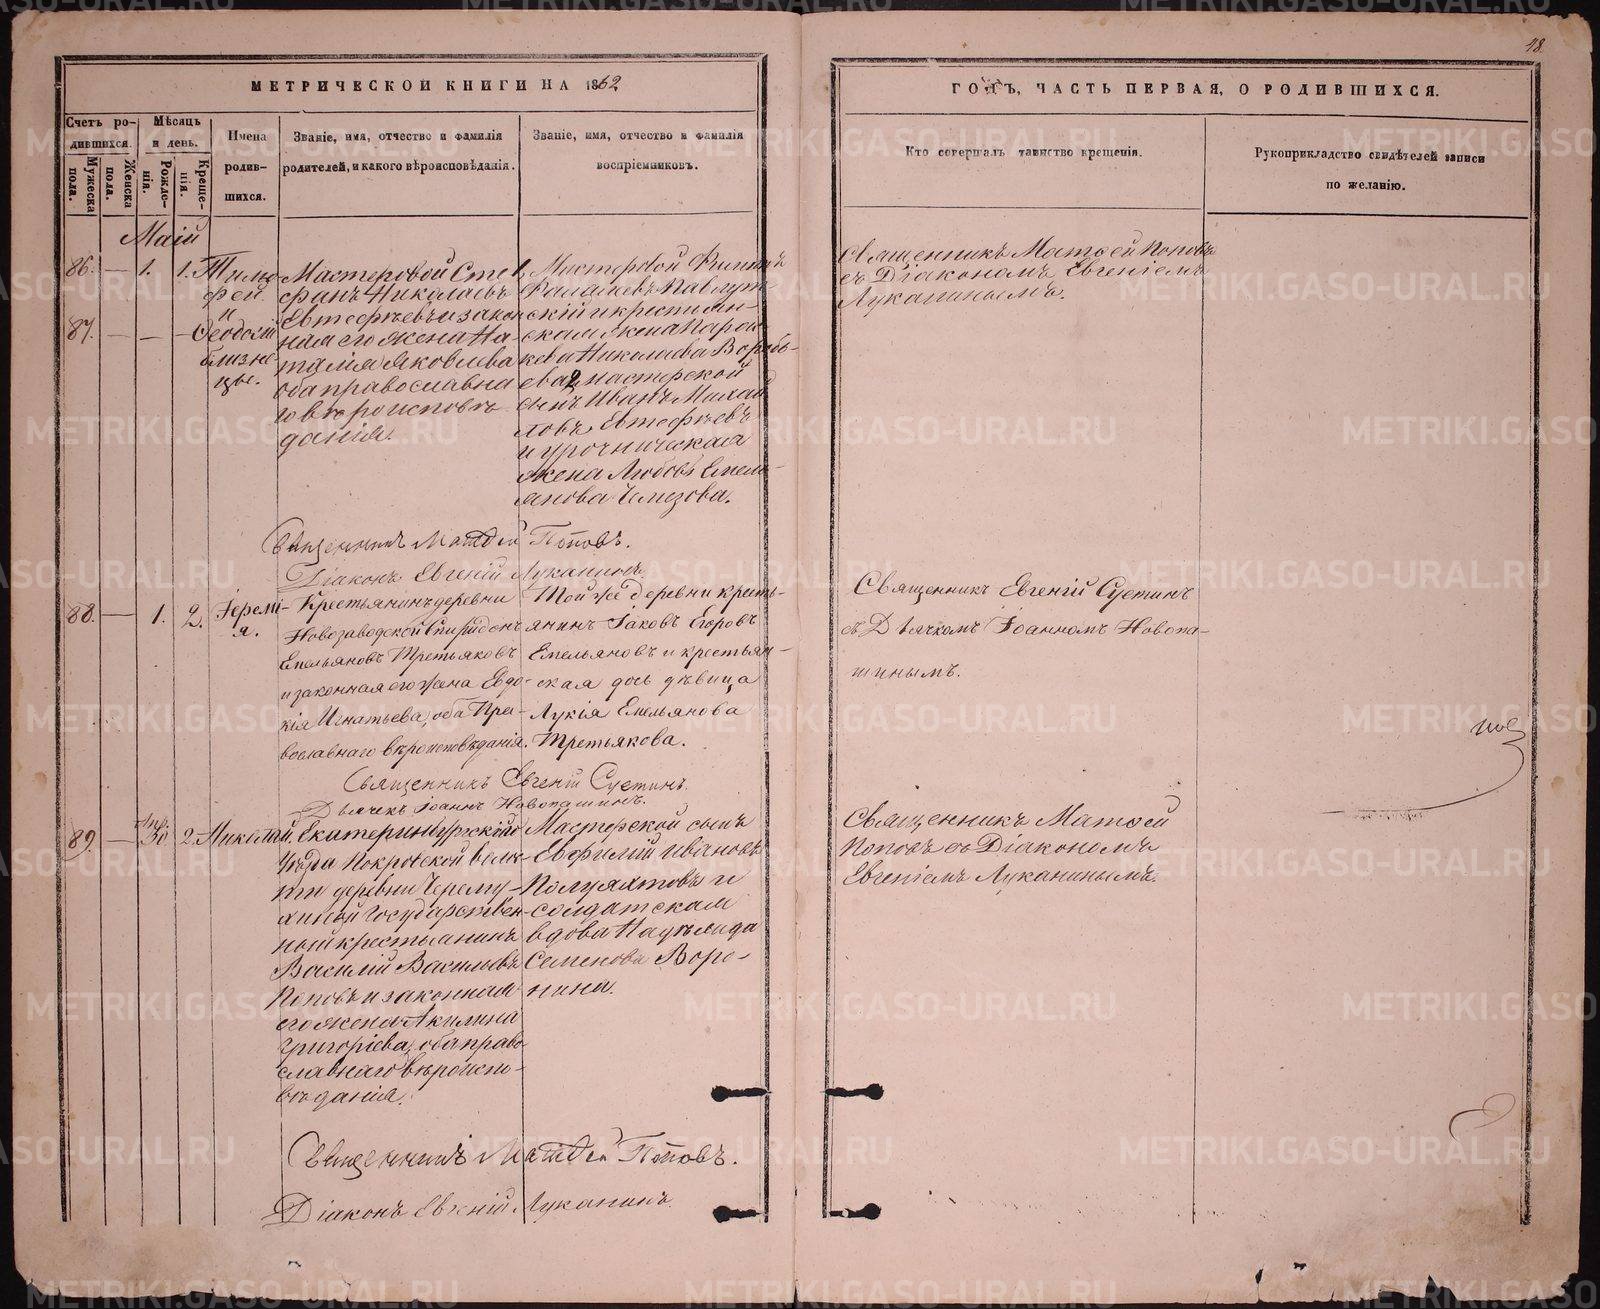 48.
МЕТРИЧЕСКОЙ КНИГИ НА 1862
ГОДЪ, ЧАСТЬ ПЕРВАЯ, О РОДИВШИХСЯ.
Счетъ ро-
дившихся.
Мужеска
пола.
Женска
пола.
Мѣсяцъ
и день.
Рожде-
нія.
Креще-
нія.
Имена
родив-
шихся.
Званіе, имя, отчество и фамилія
родителей, и какого вѣроисповѣданія.
Званіе, имя, отчество и фамилія
воспріемниковъ.
Кто совершалъ таинство крещенія.
Рукоприкладство свидѣтелей записи
по желанію.
Маій
86. — 1. 1.
87. — — —
Тимо
фей
и
Ѳеодосій
близне
цы.
Мастеровой Сте
фанъ Николаевъ
Евтефѣевъ и закон
ная его жена На-
талія Яковлева
оба православна
го вѣроисповѣ
данія.
1, Мастеровой Филиппъ
скій и крестьян-
ская жена Парас
кева Николаева Воробь-
ева 2, мастерской
сынъ Иванъ Михай
ловъ Евтефѣевъ
и урочническая
жена Любовь Емель-
янова Чемезова.
Священникъ Матѳей Поповъ
съ Діакономъ Евгеніемъ
Луканинымъ.
Священникъ Матѳей Поповъ.
Діаконъ Евгеній Луканинъ.
88. — 1. 2.
Іеремі-
я.
Крестьянинъ деревни
Новозаводской Спиридонъ
Емельяновъ Третьяковъ
и законная его жена Евдо-
кія Игнатьева, оба Пра-
вославнаго вѣроисповѣданія.
Той же деревни кресть-
янинъ Іаковъ Егоровъ
Емельяновъ и крестьян-
ская дочь дѣвица
Лукія Емельянова
Третьякова.
Священникъ Евгеній Суетинъ
съ Дьячкомъ Іоанномъ Новопа-
шинымъ.
Священникъ Евгеній Суетинъ.
Дьячекъ Іоаннъ Новопашинъ.
89. — Апр. 30. 2.
Николай.
Екатеринбургскаго
Уѣзда Покровской воло
сти деревни Черему-
Государствен-
ный крестьянинъ
Василій Васильевъ
Поповъ и законная
его жена Акилина
Григоріева, оба право
славнаго вѣроиспо-
вѣданія.
Мастерской сынъ
Евфимій Ивановъ
Полуяхтовъ и
солдатская
вдова
Семенова Воро-
нина.
Священникъ Матѳей
Поповъ съ Діакономъ
Евгеніемъ Луканинымъ.
Священникъ Матѳей Поповъ.
Діаконъ Евгеній Луканинъ.
METRIKI.GASO-URAL.RU